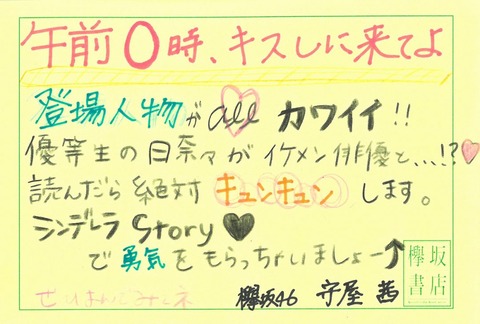 午前0時、キスしに来てよ
登場人物がallカワイイ!!
優等生の日奈々がイケメン俳優と...!?♥
読んだら絶対キュンキュンします。
シンデレラStory♥
で勇気をもらっちゃいましょー↑
ぜひよんでみてネ
欅坂46 守屋茜
欅坂書店